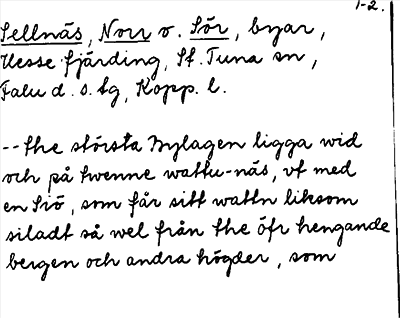 1-2.
Sellnäs, Norr o. Sör, byar,
Hesse fjärding, St. Tuna sn,
Falu d. s. tg, Kopp. l.
-- the största Bylagen ligga wid
och på twenne wattu-näs, vt med
en Siö, som får sitt wattn liksom
siladt så wel från the öfr hengande
bergen och andra högder, som